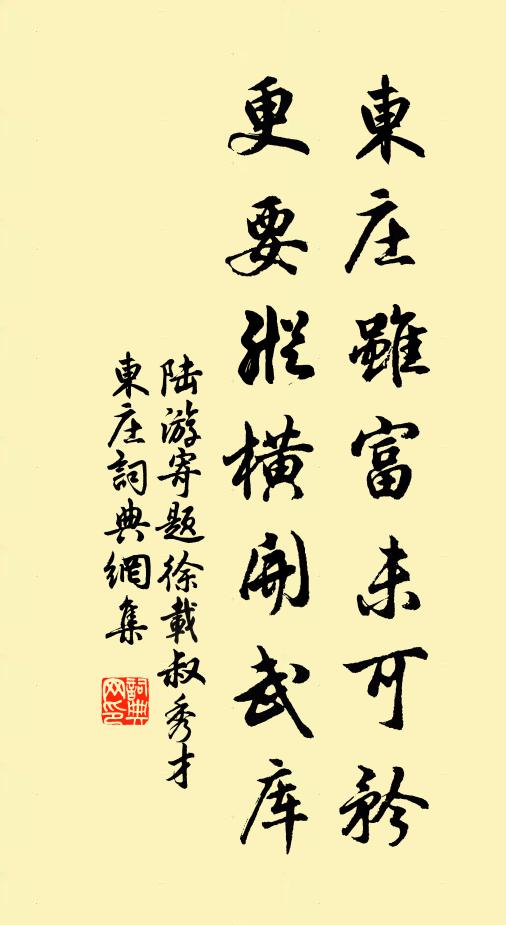 東庄雖富未可矜
更要縱橫開武库
陆游寄題徐載叔秀才
東庄詞典網集
詞典網印